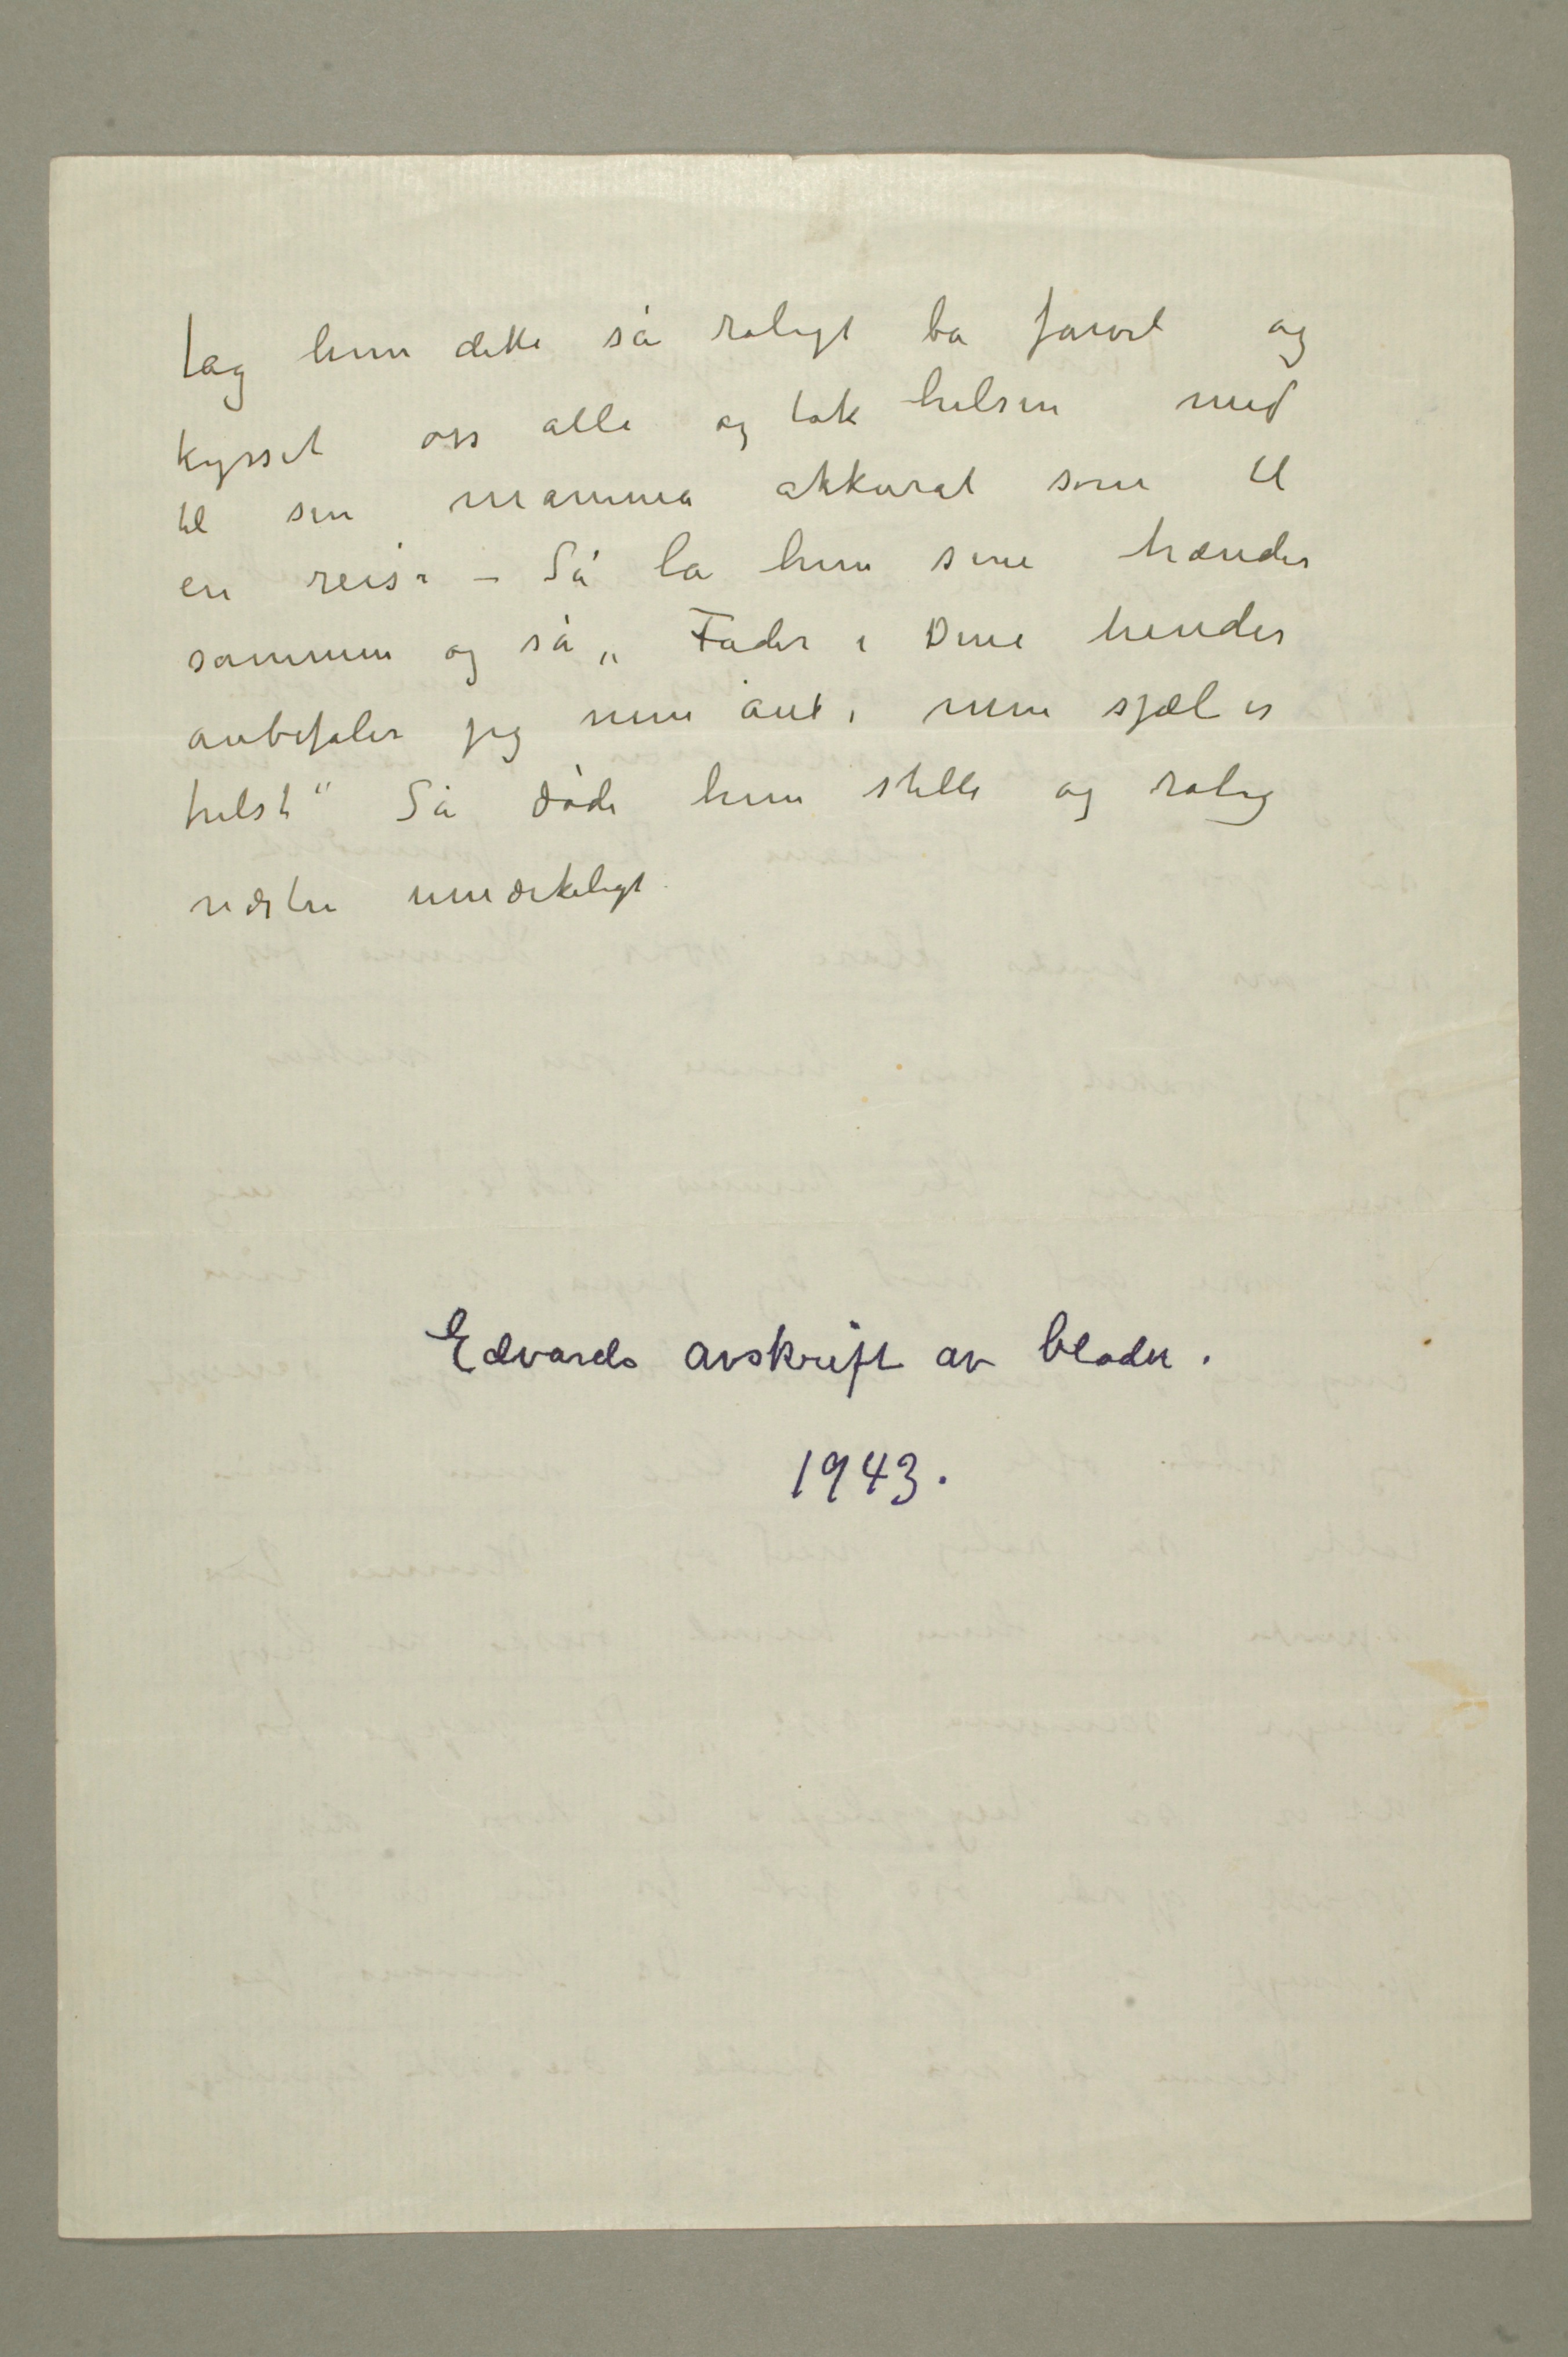 tag hun dette så roligt ba farvel og
kysset oss alle og tok hilsen med
til sin mamma akkurat som til
en reise – Så la hun sine hænder
sammen og så „Fader i Dine hender
anbefaler jeg min ånd, min sjæl er
frelst" Så døde hun stille og rolig
næsten umærkeligt
Edvards avskrift av blader.
1943.